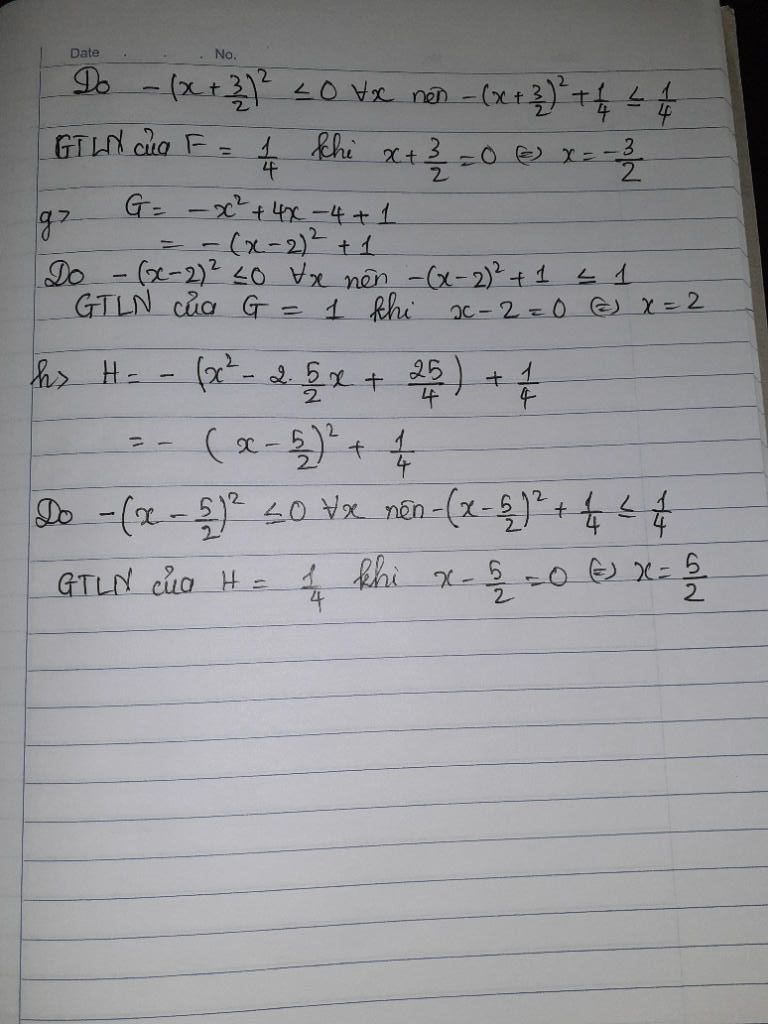 Date . . . No.
Do -(x + 3/2)² ≤ 0 ∀x nên -(x + 3/2)² + 1/4 ≤ 1/4
GTLN của F = 1/4 khi x + 3/2 = 0 ⇔ x = -3/2
g> G = -x² + 4x - 4 + 1
= -(x - 2)² + 1
Do -(x - 2)² ≤ 0 ∀x nên -(x - 2)² + 1 ≤ 1
GTLN của G = 1 khi x - 2 = 0 ⇔ x = 2
h> H = - (x² - 2.5/2x + 25/4) + 1/4
= - (x - 5/2)² + 1/4
Do -(x - 5/2)² ≤ 0 ∀x nên -(x - 5/2)² + 1/4 ≤ 1/4
GTLN của H = 1/4 khi x - 5/2 = 0 ⇔ x = 5/2